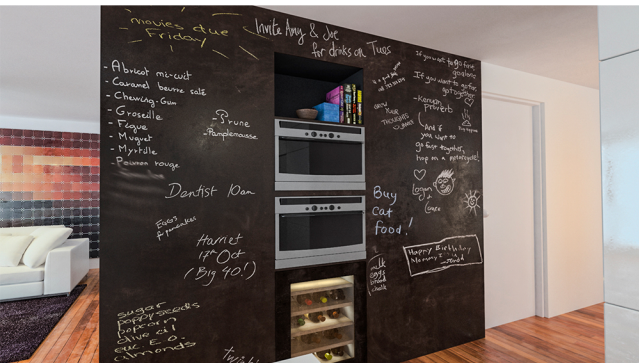 movies due
Friday
Invite Amy & Joe
for drinks on Tues
- Abricot mi-cuit
- Caramel beurre salé
- Chewing-Gum
- Groseille
- Figue
- Muguet
- Myrtille
- Poivron rouge
- Prune
- Pamplemousse
Dentist 10am
Eggs
for pancakes
Harriet
17th Oct
(Big 40!)
sugar
poppyseeds
popcorn
olive oil
almonds
If you want to go first,
go alone
If you want to go far,
go together
- Korean
Proverb
(And if
you want to
go fast together,
hop on a motorcycle!)
YOUR
THOUGHTS
Logan
+
Buy
cat
food!
Happy Birthday
Mommy
milk
eggs
bread